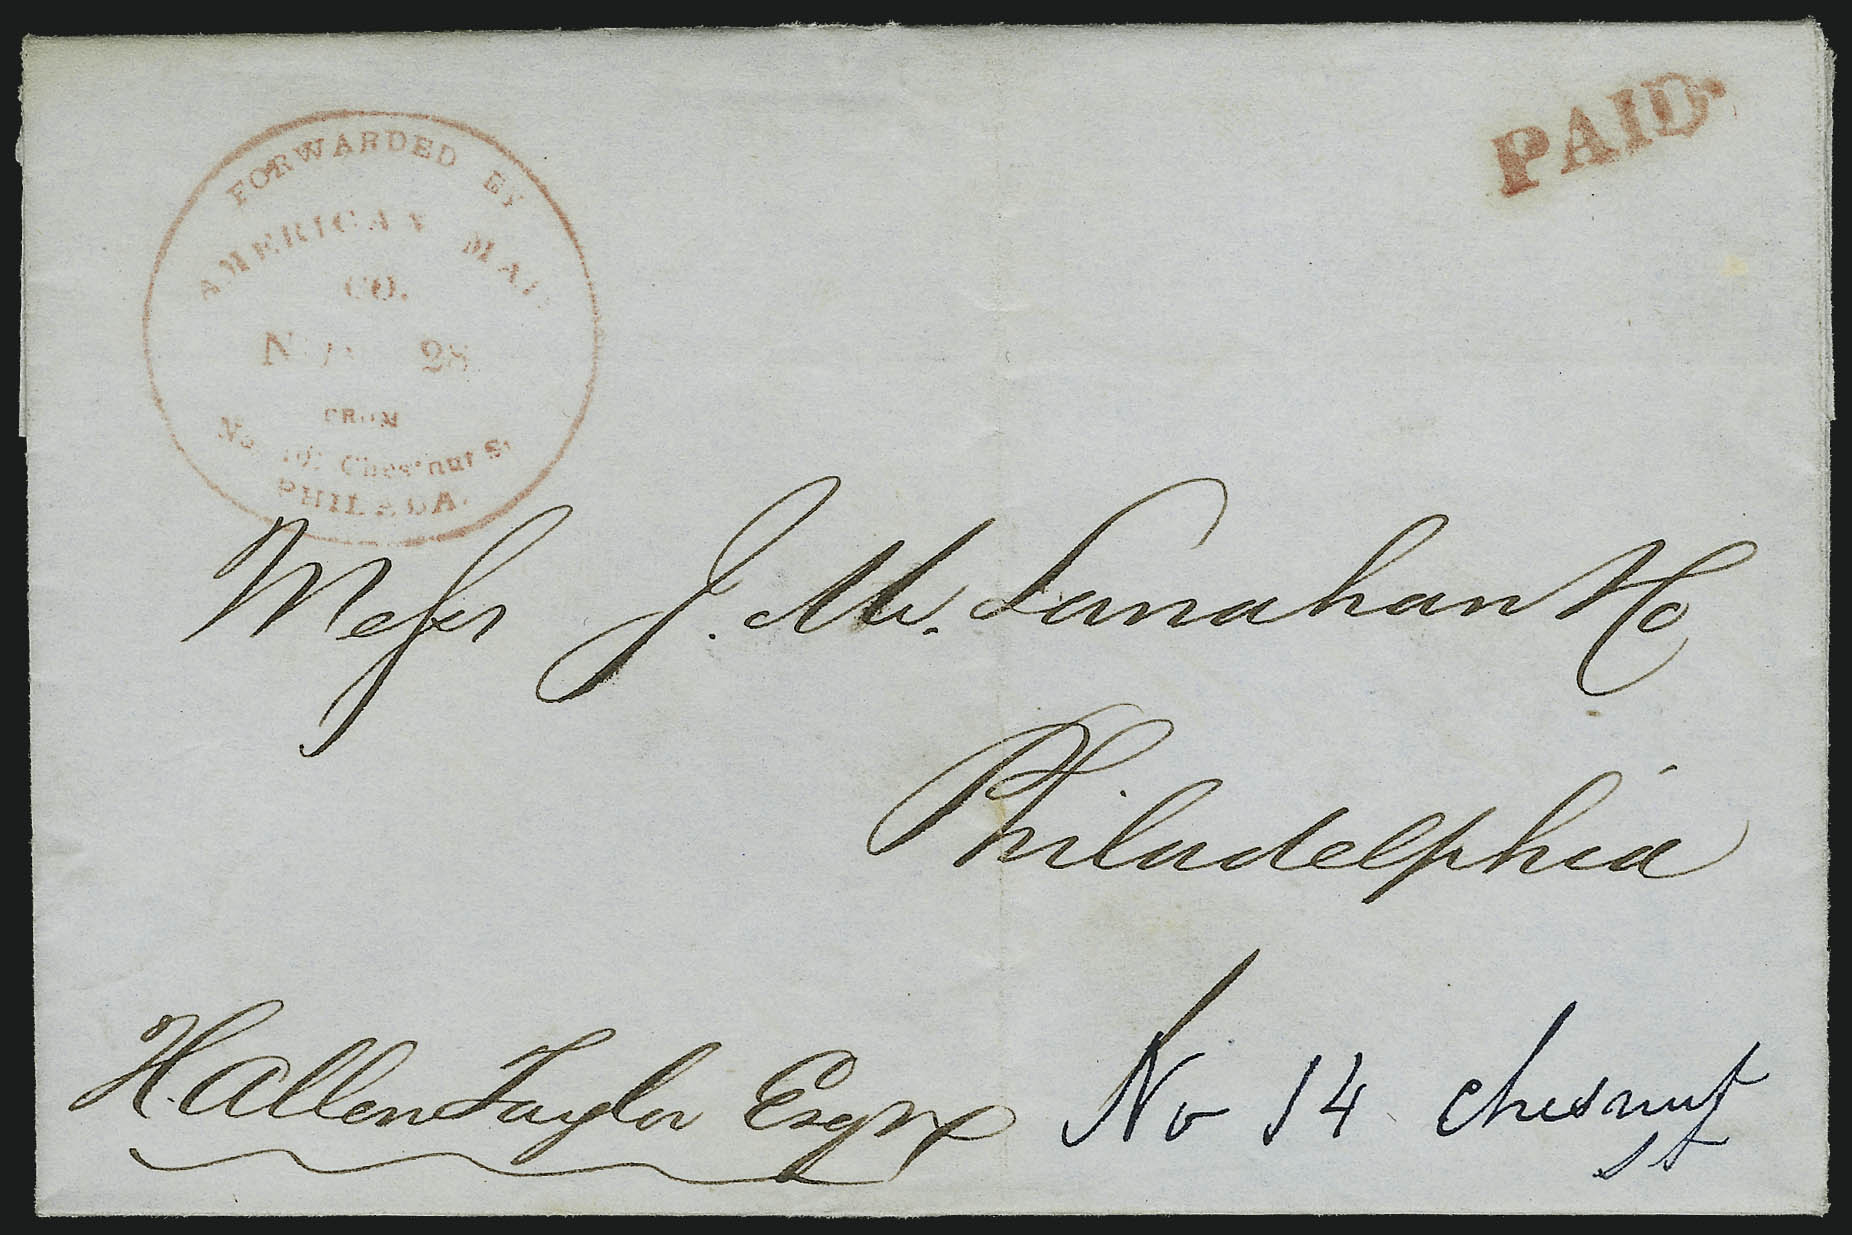 FORWARDED BY
AMERICAN MAIL
CO.
28
FROM
No. Chesnut St
PHILADA.
PAID.
Messr J. M. Lanahan & Co
Philadelphia
H. Allen Taylor Esqr
No 14 Chesnut
st